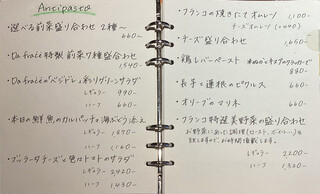 Antipasto
・選べる前菜盛り合わせ 2種〜
660-
・Da fratè特製 前菜7種盛合わせ
1,540-
・Da fratèのベジドレ彩りグリーンサラダ
レギュラー 990-
ハーフ 660-
・本日の鮮魚のカルパッチョ 海ぶどう添え
レギュラー 1,870-
ハーフ 1,100-
・ブッラータチーズと色はトマトのサラダ
レギュラー 2,420-
ハーフ 1,430-
・フランコの焼きたてオムレツ 1,100-
チーズオムレツ(+440)
・チーズ盛り合わせ 1,650-
・鶏レバーペースト
880-
・長芋と蓮根のピクルス 660-
・オリーブのマリネ 660-
・フランコ特選美野菜の盛り合わせ
お野菜にあった調理
お時間頂戴します。
レギュラー 2,200-
ハーフ 1,320-